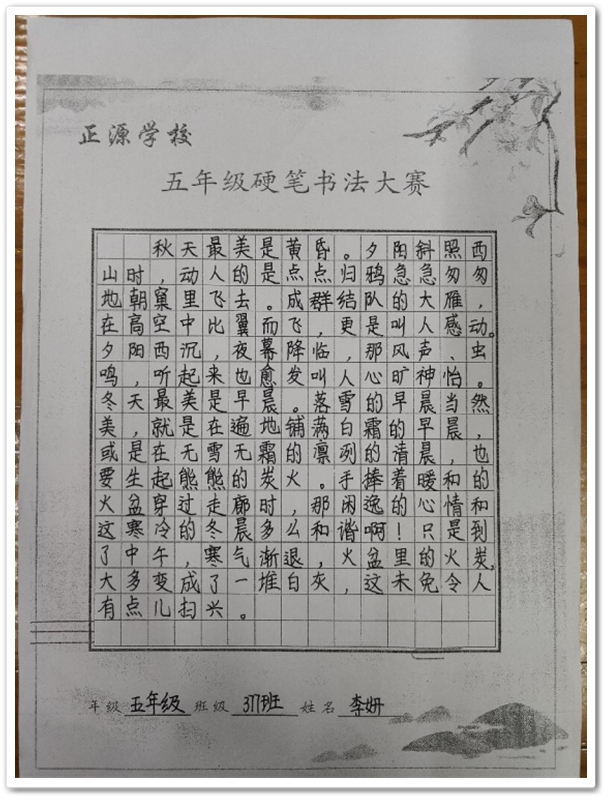 正源学校
五年级硬笔书法大赛
秋天最美是黄昏。夕阳斜照西
山时，动人的是点点归鸦急急匆匆
地朝窠里飞去。成群结队的大雁，
在高空中比翼而飞，更是叫人感动。
夕阳西沉，夜幕降临，那风声、虫
鸣，听起来也愈发叫人心旷神怡。
冬天最美是早晨。落雪的早晨当然
美，就是在遍地铺满白霜的早晨，
或是在无雪无霜的凛冽的清晨，也
要生起熊熊的炭火。手捧着暖和的
火盆穿过走廊时，那闲逸的心情和
这寒冷的冬晨多么和谐啊！只是到
了中午，寒气渐退，火盆里的火炭，
大多变成了一堆白灰，这未免令人
有点儿扫兴。
年级 五年级 班级 377班 姓名 李妍